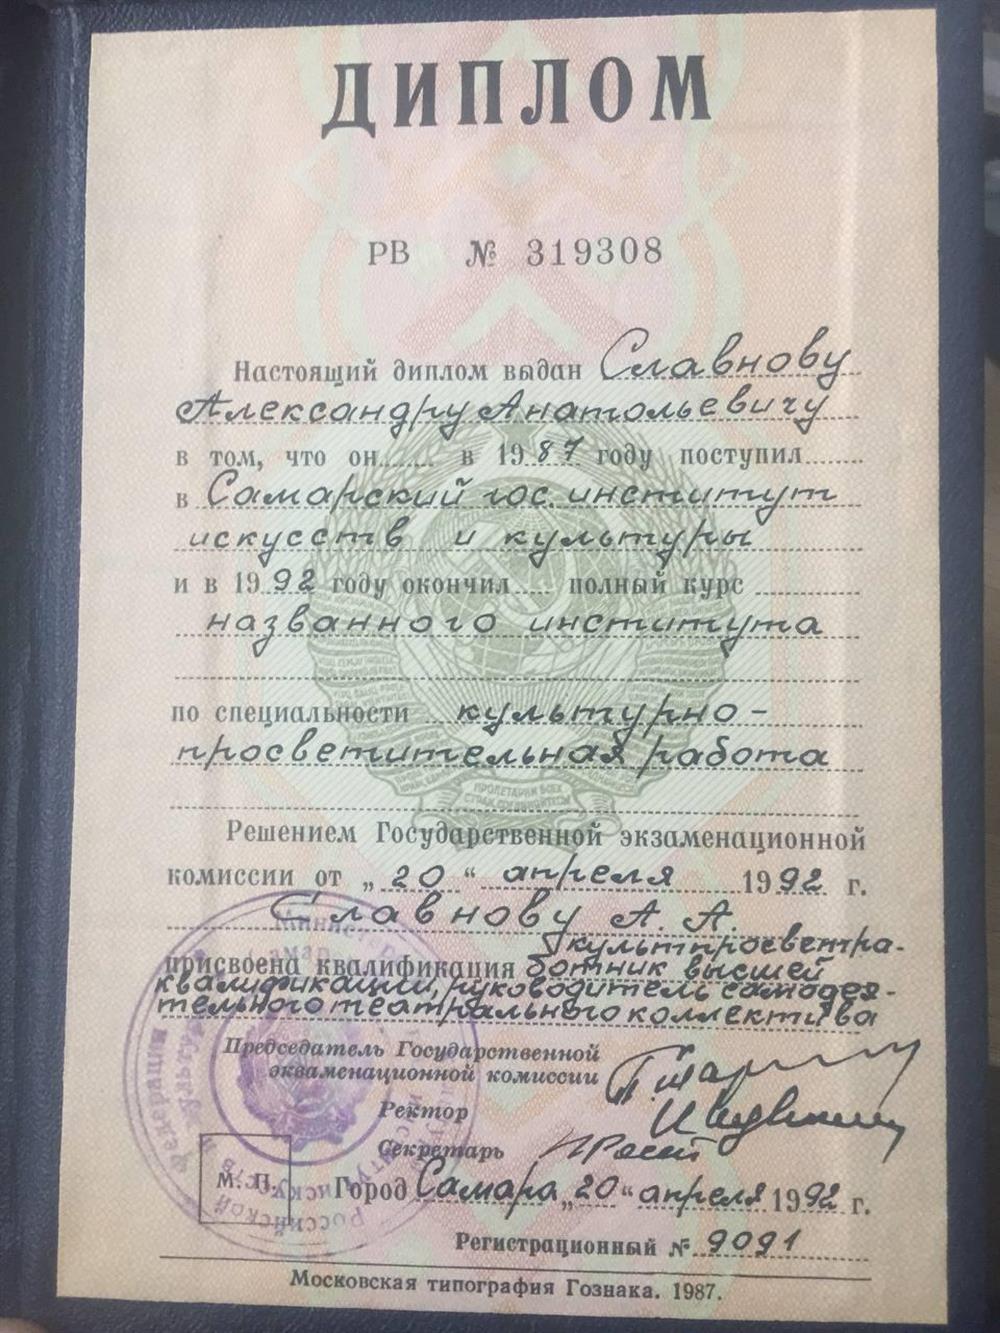 ДИПЛОМ
РВ № 319308
Настоящий диплом выдан Славнову
Александру Анатольевичу
в том, что он в 1987 году поступил
в Самарский гос. институт
искусств и культуры
и в 1992 году окончил полный курс
названного института
по специальности культурно-
просветительная работа
ПРОЛЕТАРИИ ВСЕХ
СТРАН, СОЕДИНЯЙТЕСЬ
Решением Государственной экзаменационной
комиссии от „20“ апреля 1992 г.
Славнову А. А.
присвоена квалификация культпросветра-
ботник высшей
квалификации, руководитель самодея-
тельного театрального коллектива
Председатель Государственной
экзаменационной комиссии
Ректор
Секретарь
М. П. Город Самара „20“ апреля 1992 г.
Регистрационный № 9091
Московская типография Гознака. 1987.